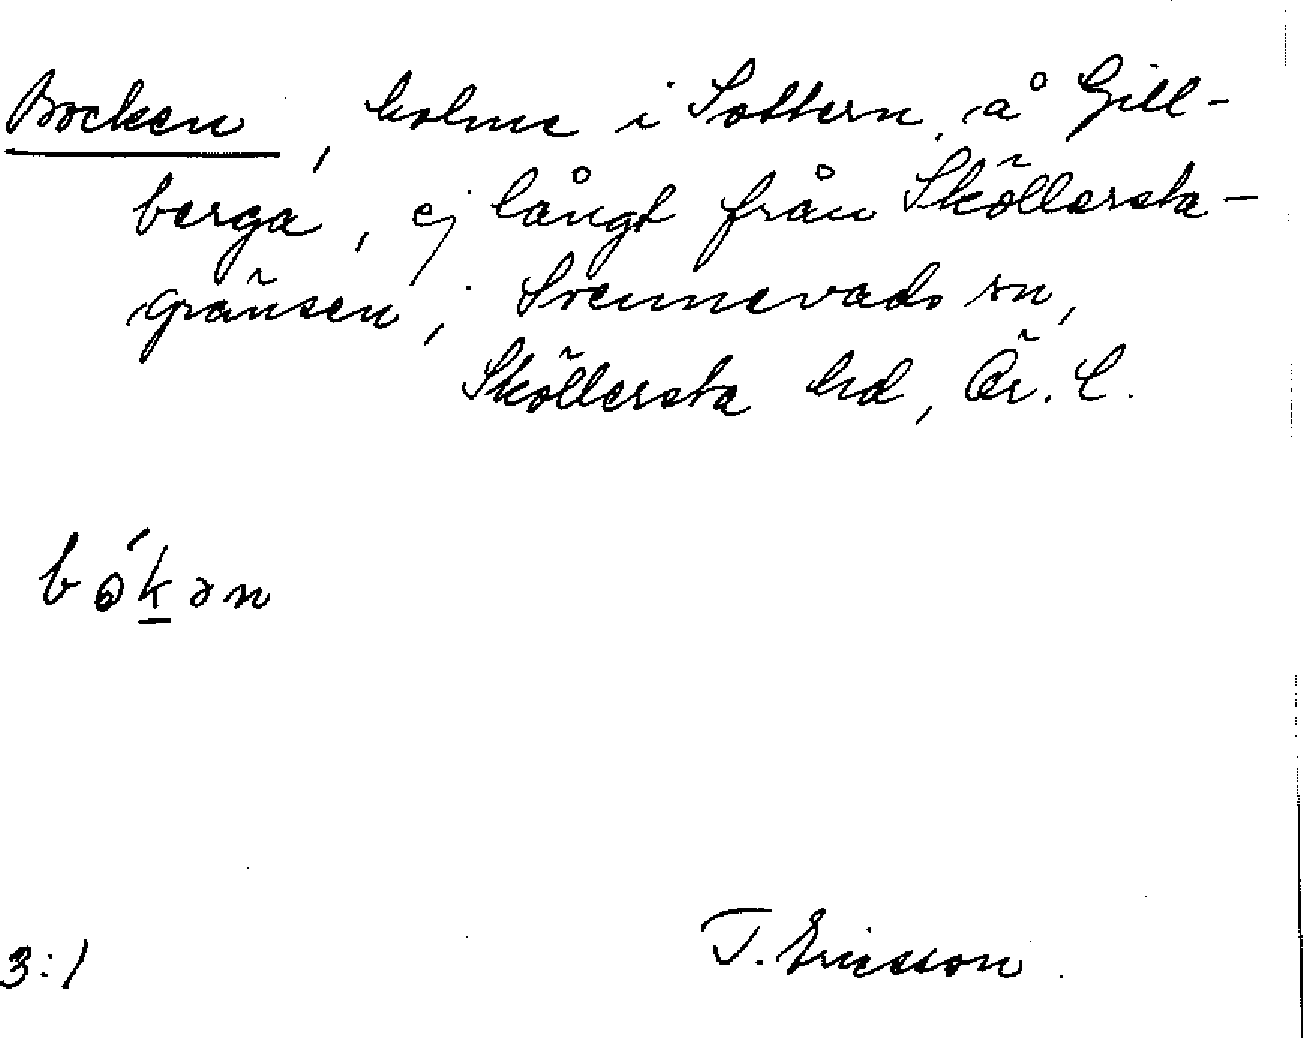 Bocken, holme i Sottern å Gill-
berga, ej långt från Sköllersta-
gränsen, Svennevads sn,
Sköllersta hd, Ör. l.
bók̲ən
3:1
T. Ericsson